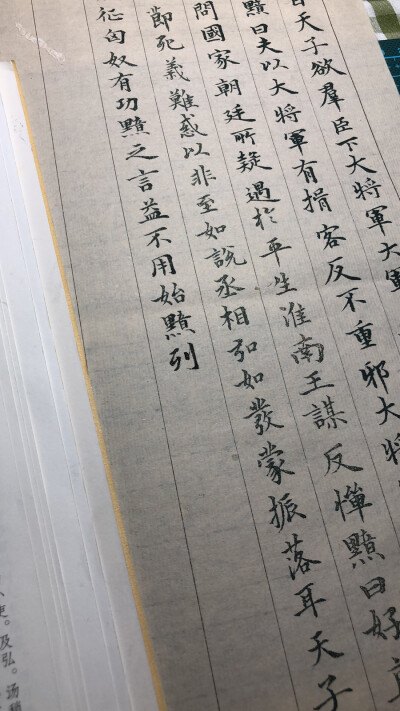 天子欲羣臣下大將軍大
黯曰夫以大將軍有揖客反不重邪大將
問國家朝廷所疑遇於平生淮南王謀反憚黯曰好直
節死義難惑以非至如說丞相弘如發蒙振落耳天子
征匈奴有功黯之言益不用始黯列
吏。及弘。汤